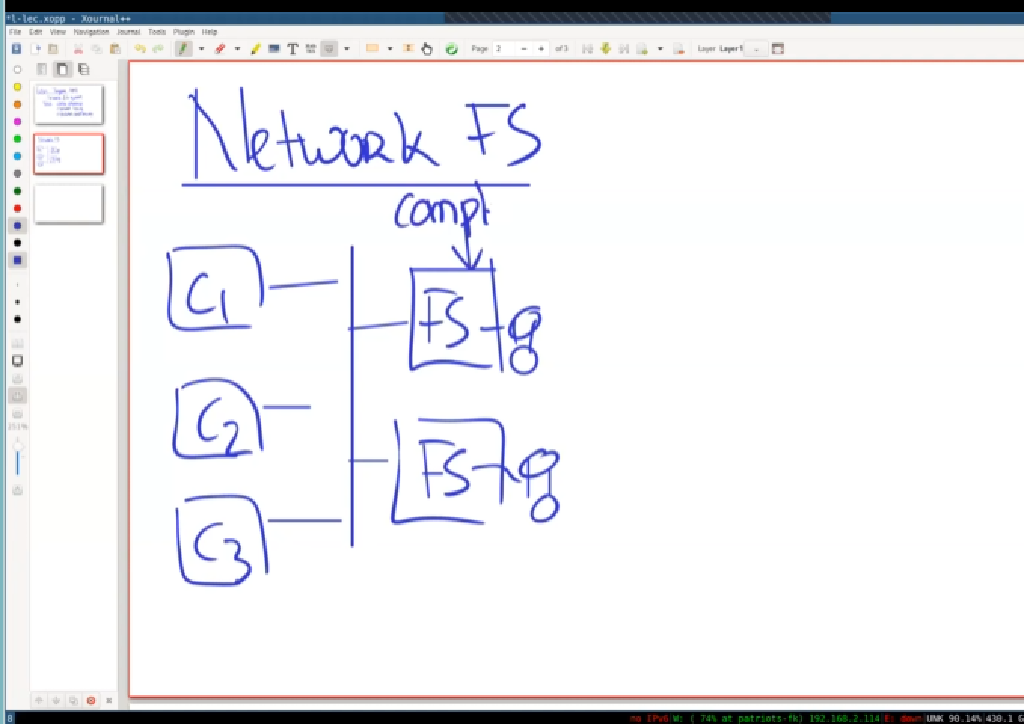 *l-lec.xopp - Xournal++
File Edit View Navigation Journal Tools Plugin Help
Page 2 of 3 Layer Layer1
Network FS
Compl
C1
FS
C2
FS
C3
no IPv6 W: ( 74% at patriots-fk) 192.168.2.114 E: down UNK 90.14% 430.1 G